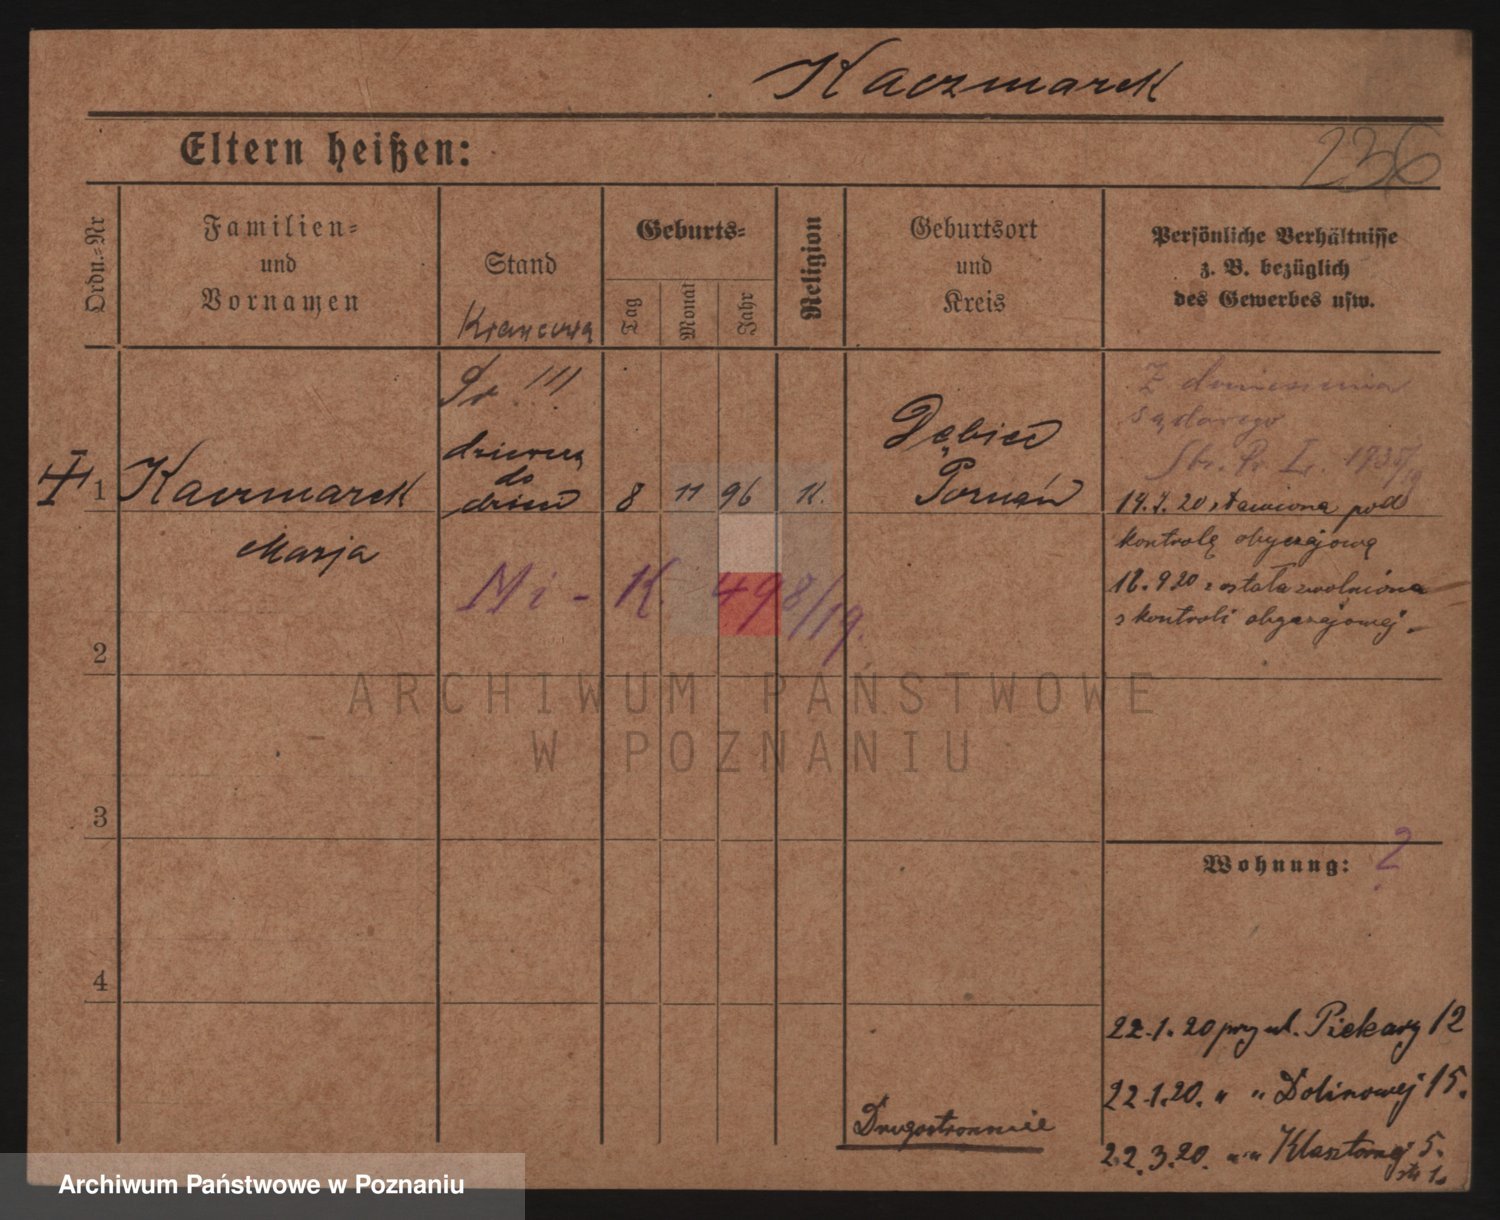 Kaczmarek
Eltern heißen:
236
Ordn.-Nr
Familien-
und
Vornamen
Stand
Geburts-
Tag
Monat
Jahr
Religion
Geburtsort
und
Kreis
Persönliche Verhältnisse
z. B. bezüglich
des Gewerbes usw.
Z doniesienia
1 Kaczmarek
Marja
dziewcz
do
8 11 96 K.
Dębiec
Poznań
14.7.20 stawiona pod
kontrolę obyczajową
18.9.20 została zwolniona
s kontroli obyczajowej
Mi - K. 498/19.
2
3
4
ARCHIWUM PAŃSTWOWE
W POZNANIU
Wohnung: ?
22.1.20 przy ul. Piekary 12
22.1.20. " " Dolinowej 15.
22.3.20. " " Klasztornej 5.
Drugostronnie
Archiwum Państwowe w Poznaniu